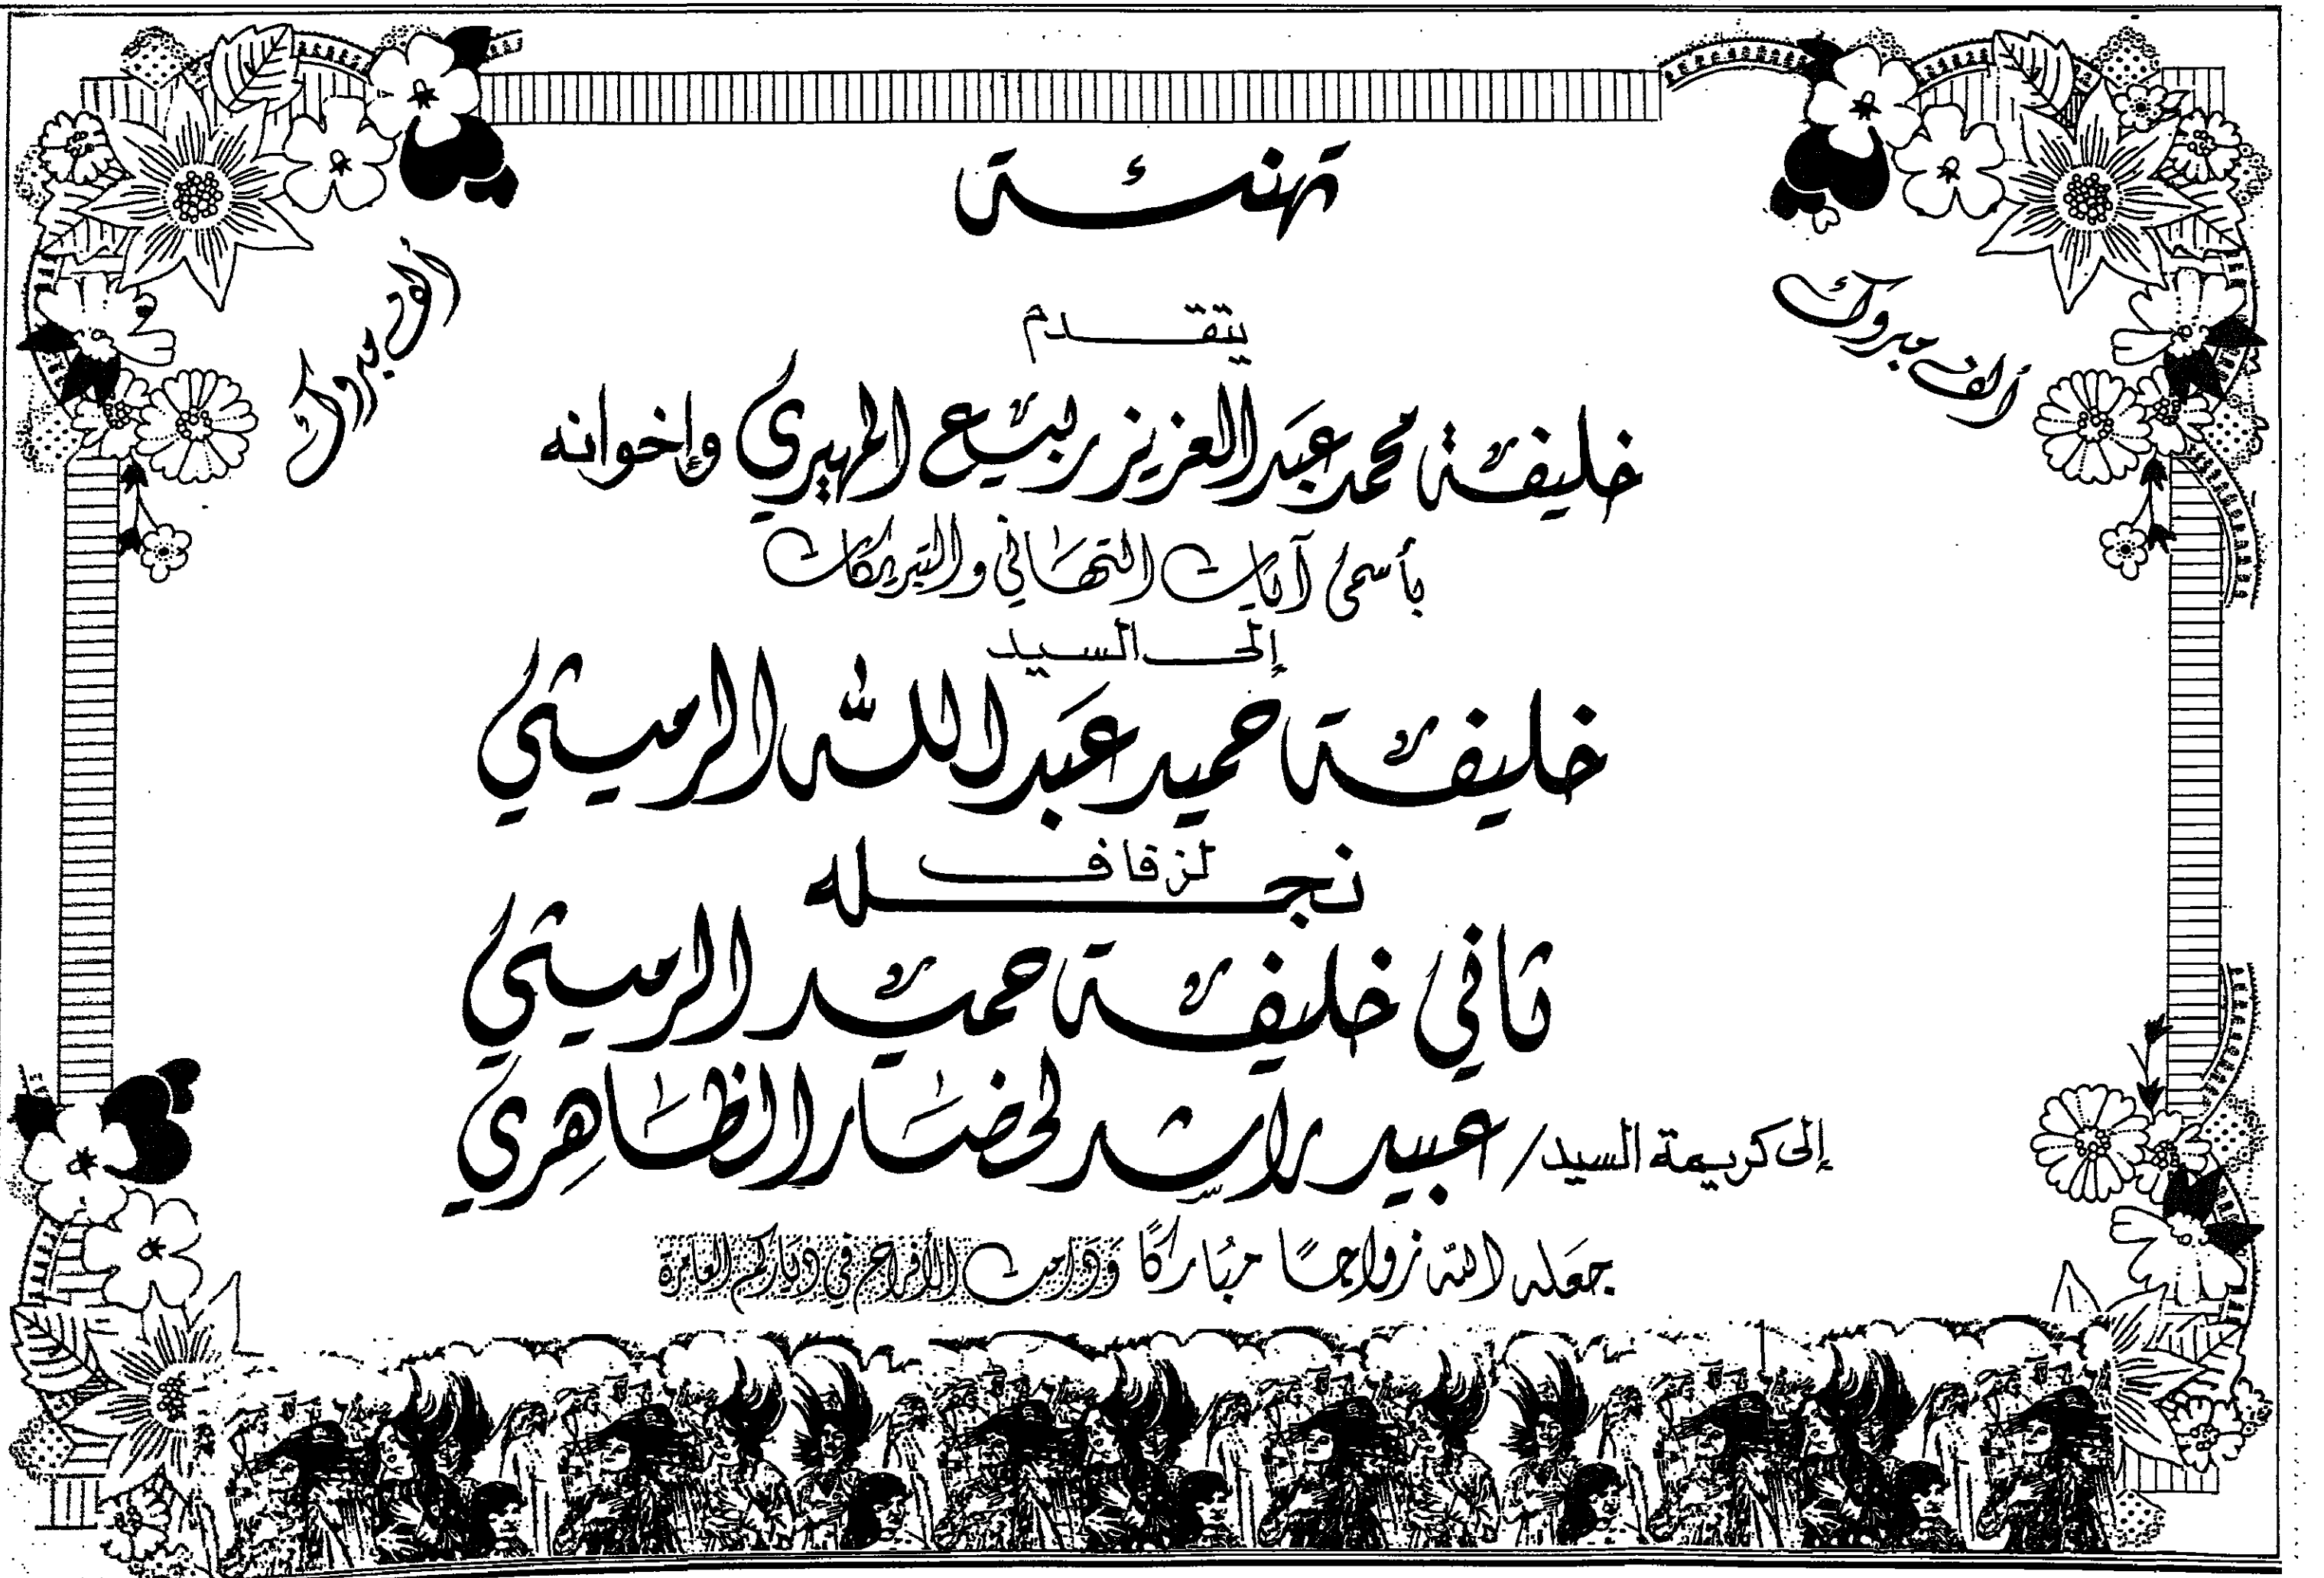 تهنئة
ألف مبروك
ألف مبروك
يتقدم
خليفة محمد عبد العزيز ربيع المهيري وإخوانه
بأسمى آيات التهاني والتبريكات
إلى السيد
خليفة حميد عبد الله الرميثي
لزفاف
نجله
ثاني خليفة حميد الرميثي
إلى كريمة السيد/ عبيد راشد لخضار الظاهري
جعله الله زواجًا مُباركًا وَدَامت الأفراح في دياركم العامرة